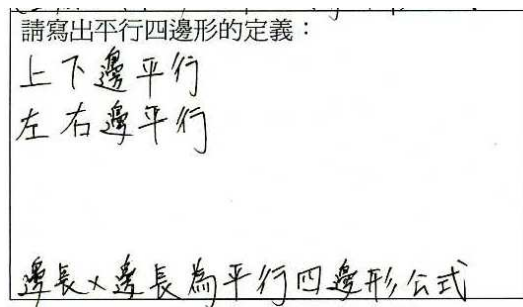 請寫出平行四邊形的定義：
上下邊平行
左右邊平行
邊長×邊長為平行四邊形公式